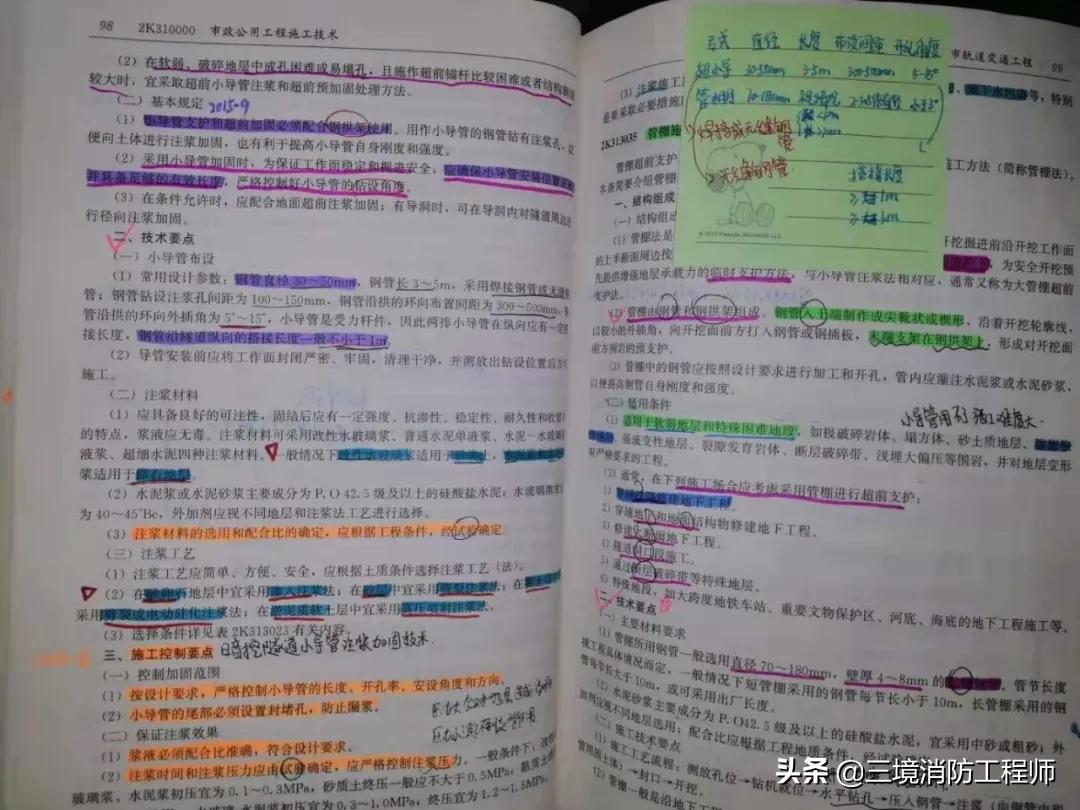 98 2K310000 市政公用工程施工技术
(2)在软弱、破碎地层中成孔困难或易塌孔，且施作超前锚杆比较困难或者结构断面
较大时，宜采取超前小导管注浆和超前预加固处理方法。
(二)基本规定 2015-9
(1)小导管支护和超前加固必须配合钢拱架使用。用作小导管的钢管钻有注浆孔，以
便向土体进行注浆加固，也有利于提高小导管自身刚度和强度。
(2)采用小导管加固时，为保证工作面稳定和掘进安全，应确保小导管安装位置
并具备足够的有效长度，严格控制好小导管的钻设角度。
(3)在条件允许时，应配合地面超前注浆加固；有导洞时，可在导洞内对隧道周边
行径向注浆加固。
二、技术要点
(一)小导管布设
(1)常用设计参数：钢管直径30～50mm，钢管长3～5m，采用焊接钢管或无缝
管；钢管钻设注浆孔间距为100～150mm，钢管沿拱的环向布置间距为300～500mm，
管沿拱的环向外插角为5°～15°，小导管是受力杆件，因此两排小导管在纵向应有一定
接长度，钢管沿隧道纵向的搭接长度一般不小于1m。
(2)导管安装前应将工作面封闭严密、牢固，清理干净，并测放出钻设位置后方
施工。
(二)注浆材料
(1)应具备良好的可注性，固结后应有一定强度、抗渗性、稳定性、耐久性和收缩
的特点，浆液应无毒。注浆材料可采用改性水玻璃浆、普通水泥单液浆、水泥-水玻璃
液浆、超细水泥四种注浆材料。一般情况下改性水玻璃浆适用于砂类土，
浆适用于卵石地层。
(2)水泥浆或水泥砂浆主要成分为P.O42.5级及以上的硅酸盐水泥；水玻璃浓
为40～45°Be，外加剂应视不同地层和注浆法工艺进行选择。
(3)注浆材料的选用和配合比的确定，应根据工程条件，经试验确定。
(三)注浆工艺
(1)注浆工艺应简单、方便、安全，应根据土质条件选择注浆工艺(法)。
(2)在砂卵石地层中宜采用渗入注浆法；在砂层中宜采用劈裂注浆法；在
采用劈裂或电动硅化注浆法；在淤泥质软土层中宜采用高压喷射注浆法。
(3)选择条件详见表2K313023有关内容。
三、施工控制要点 暗挖隧道小导管注浆加固技术.
(一)控制加固范围
(1)按设计要求，严格控制小导管的长度、开孔率、安设角度和方向。
(2)小导管的尾部必须设置封堵孔，防止漏浆。
(二)保证注浆效果
(1)浆液必须配合比准确，符合设计要求。
(2)注浆时间和注浆压力应由试验确定，应严格控制注浆压力。一般条件下：改性
玻璃浆、水泥浆初压宜为0.1～0.3MPa，砂质土终压一般应不大于0.5MPa，黏质土
水泥浆初压宜为0.3～1.0MPa，终压宜为1.2～1.5M
市轨道交通工程 99
(3)注浆施工
是要采取必要措施
等，特别
2K313035 管棚施
方式 直径 长度 布设间距 开孔角度
3-5m 5-15°
管棚
焊接或无缝钢管
无缝钢管
搭接长度
管棚超前支护
施工方法（简称管棚法），
本条简要介绍管棚
一、结构组成
(一)结构组成
(1)管棚法是
开挖掘进前沿开挖工作面
的上半断面周边按
为安全开挖预
先提供增强地层承载力的临时支护方法，与小导管注浆法相对应，通常又称为大管棚超前
支护法。
(2)管棚由钢管和钢拱架组成。钢管入土端制作成尖靴状或楔形，沿着开挖轮廓线，
以较小的外插角，向开挖面前方打入钢管或钢插板，末端支架在钢拱架上，形成对开挖面
前方围岩的预支护。
(3)管棚中的钢管应按照设计要求进行加工和开孔，管内应灌注水泥浆或水泥砂浆，
以便提高钢管自身刚度和强度。
(二)适用条件 小导管用不 施工难度大.
(1)适用于软弱地层和特殊困难地段，如极破碎岩体、塌方体、砂土质地层、
强流变性地层、裂隙发育岩体、断层破碎带、浅埋大偏压等围岩，并对地层变形
有严格要求的工程。
(2)通常，在下列施工场合应考虑采用管棚进行超前支护：
1)穿越铁路修建地下工程。
2)穿越地下和地面结构物修建地下工程。
3)修建大断面地下工程。
4)隧道洞口段施工。
5)通过断层破碎带等特殊地层。
6)特殊地段，如大跨度地铁车站、重要文物保护区、河底、海底的地下工程施工等。
二、技术要点
(一)主要材料要求
(1)管棚所用钢管一般选用直径70～180mm，壁厚4～8mm的 。管节长度
视工程具体情况而定，一般情况下短管棚采用的钢管每节长小于10m，长管棚采用的钢
管每节长大于10m，或可采用出厂长度。
(2)水泥砂浆主要成分为P.O42.5级及以上的硅酸盐水泥，宜采用中砂或粗砂；外
加剂应视不同地层选用；配合比应根据工程地质条件，经
(二)施工技术要点
(1)施工工艺流程：测放孔位→钻机就位→水平钻孔→压入钢管→
管周围土体)→封口→开挖。
(2)管棚一般是沿地下工程
头条@三境消防工程师